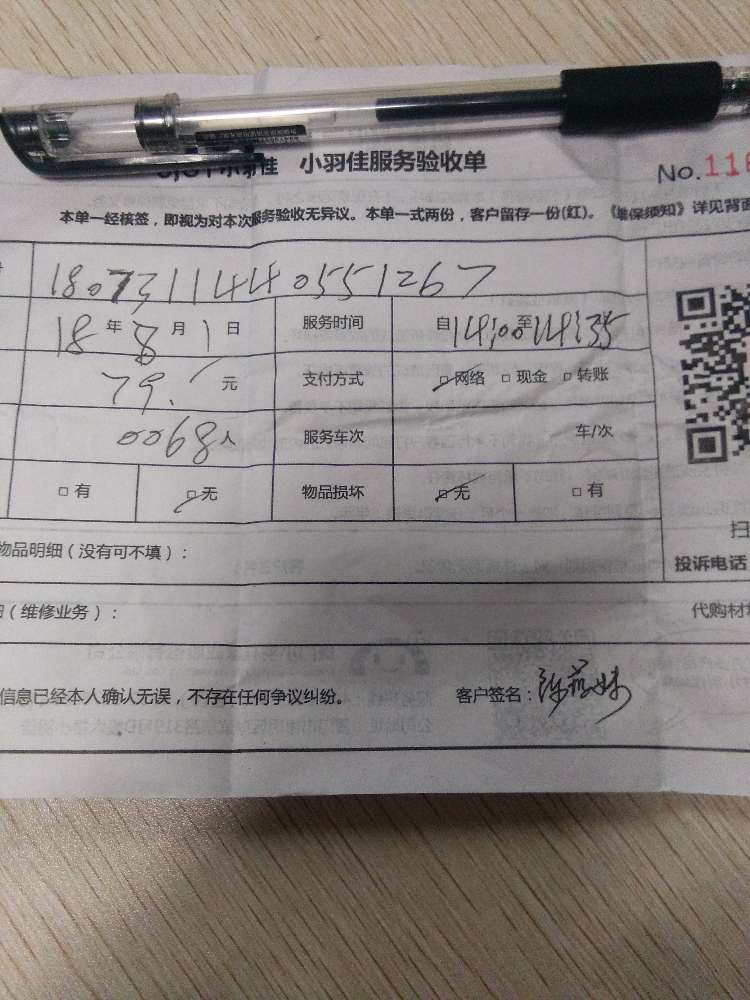 小羽佳 小羽佳服务验收单
No.11
本单一经核签，即视为对本次服务验收无异议。本单一式两份，客户留存一份(红)。《维保须知》详见背面
1807311440551267
18年8月1日 服务时间 自14:00至14:35
79.元 支付方式 网络 现金 转账
0068人 服务车次 车/次
有 无 物品损坏 无 有
扫
物品明细（没有可不填）：
投诉电话
（维修业务）： 代购材
信息已经本人确认无误，不存在任何争议纠纷。 客户签名：